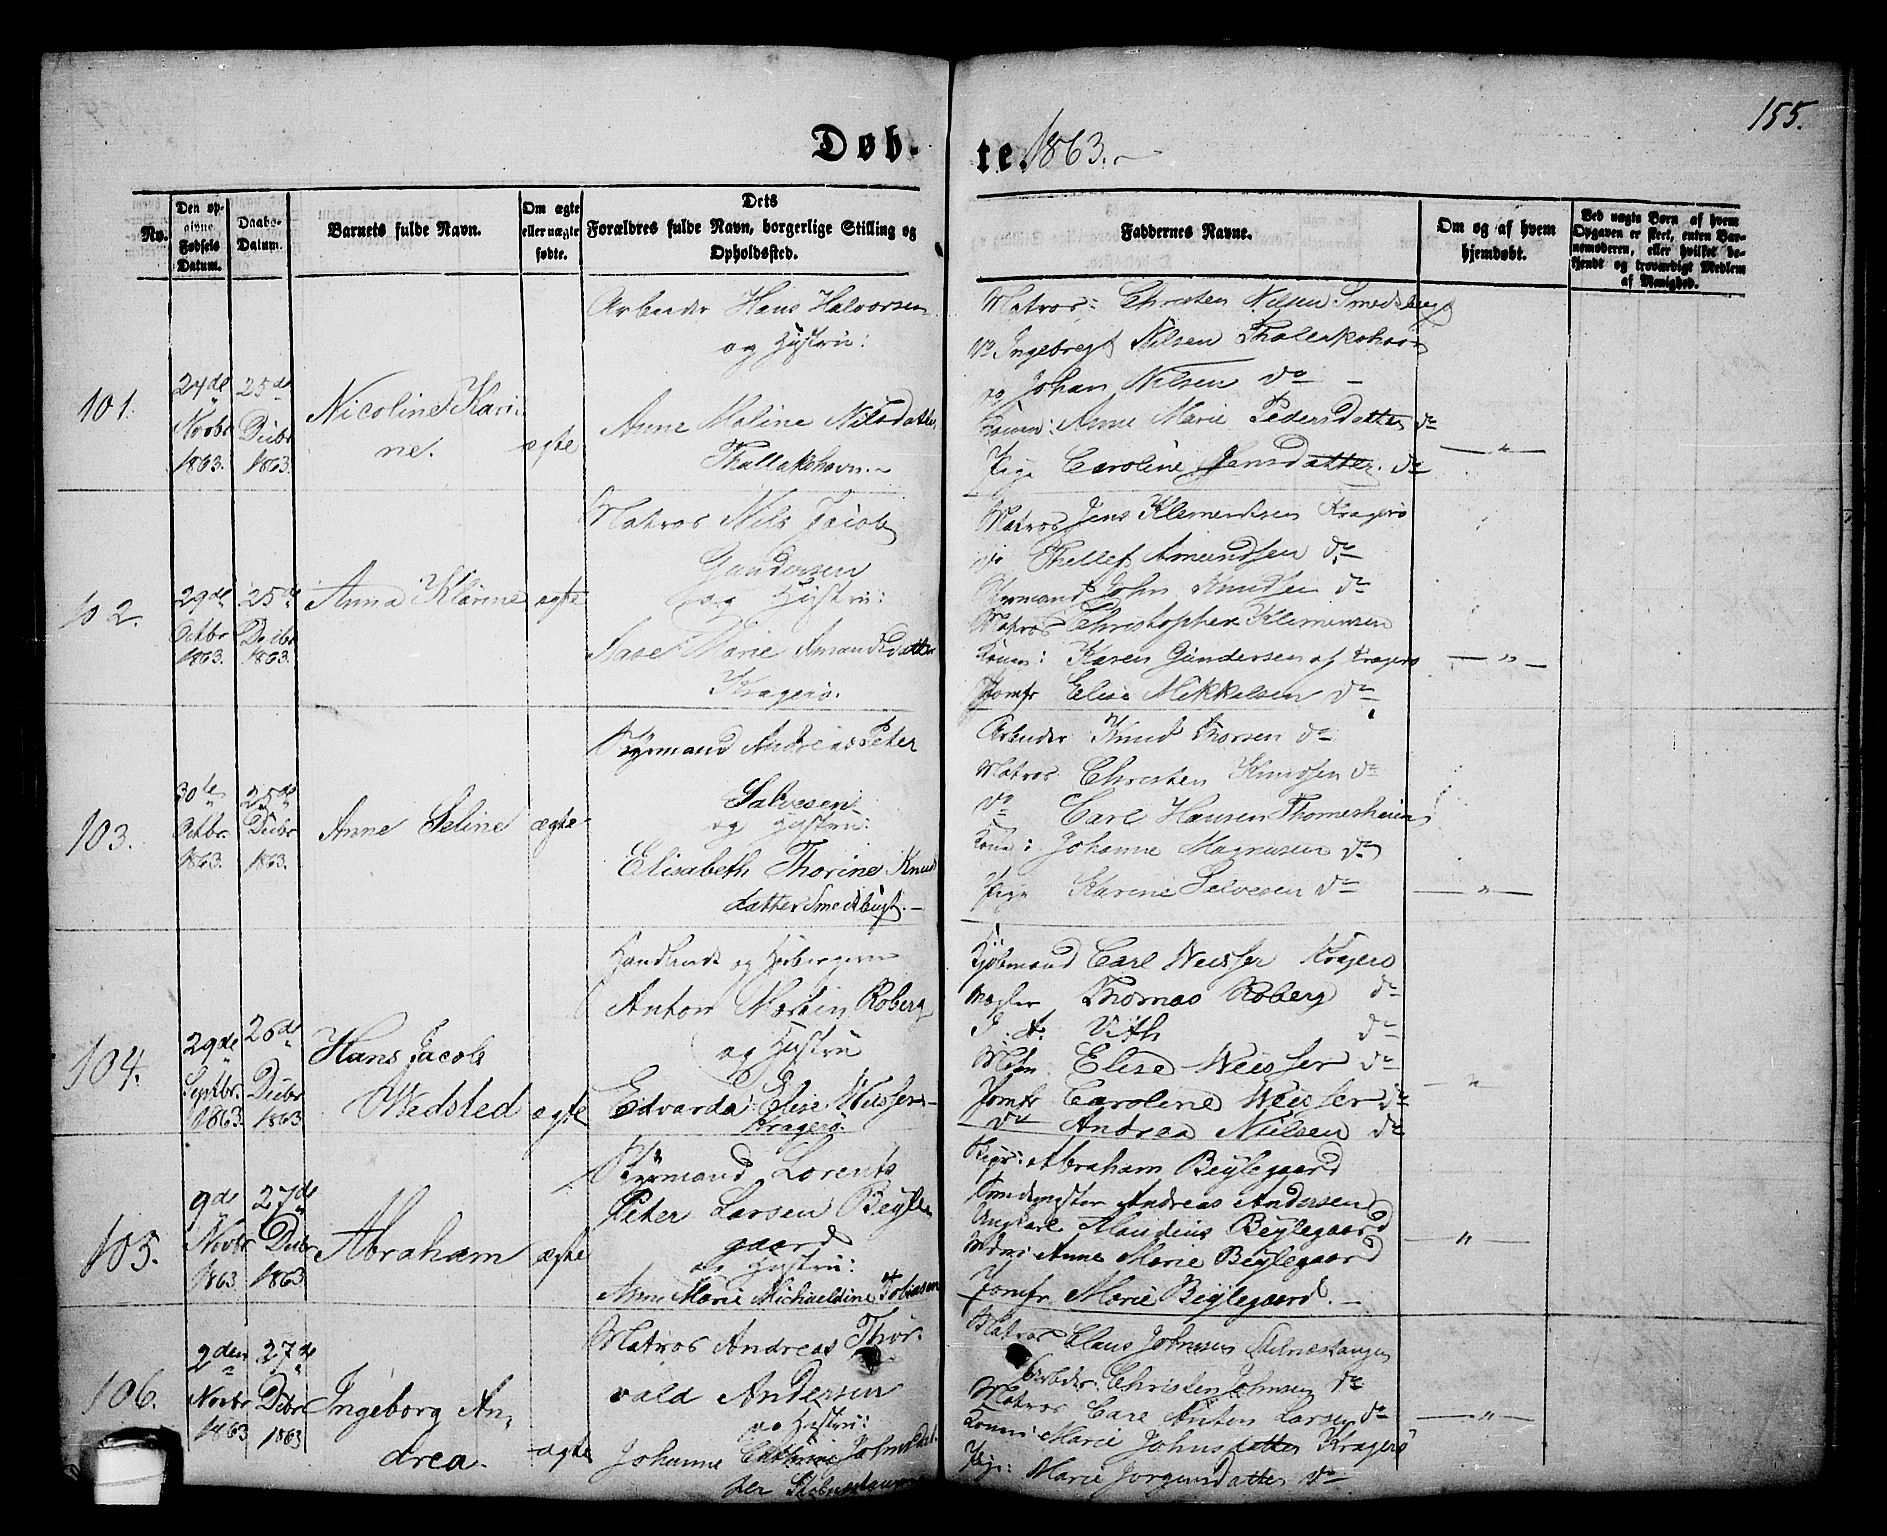 155.
Døb- te. 1863.
No.
Den op-
givne
Fødsels
Datum.
Daabs-
Datum.
Barnets fulde Navn.
Om ægte
eller uægte
fødte.
Dets
Forældres fulde Navn, borgerlige Stilling og
Opholdssted.
Faddernes Navne.
Om og af hvem
hjemdøbt.
Ved uægte Børn af hvem
Opgaven er skeet, enten Bar-
nemoderen, eller hvilket be-
kjendt og troværdigt Medlem
af Menighed.
101.
24de
Novbr
1863.
25de
Decbr
1863.
Nicoline Kari
ne.
ægte
Arbeider Hans Halvorsen
og Hustru:
Anne Maline Nilsdatter
Thallakshavn.
Matros: Christen Nilsen Smedsbugt
do Ingebregt Nilsen Thallakshavn
do Johan Nilsen do
Konen: Anne Marie Pedersdatter do
Pige Caroline Jensdatter. do
— " —
102.
29de
Octbr
1863.
25de
Decbr
1863.
Anna Klarine
ægte
Matros Nils Jacob
Gundersen
og Hustru:
Aase Marie Amundsdatter
Kragerø.
Matros Jens Klementsen Kragerø
do Thellef Amundsen do
Styrmand John Knudsen do
Matros Christopher Klemensen
Konen: Karen Gundersen af Kragerø
Jomfr Elise Mikkelsen do
— " —
103.
30te
Octbr.
1863.
25de
Decbr
1863.
Anne Seline
ægte
Styrmand Andreas Peter
Salvesen
og Hustru:
Elisabeth Thorine Knud
datter Smedsbugt. —
Arbeider Knud Thorsen do
Matros Christen Knudsen do
do Carl Hansen Thomesheien
Kone: Johanne Magnusen do
Pige Karine Salvesen do
— " —
104.
29de
Septbr.
1863.
26de
Decbr
1863
Hans Jacob
Wedsted
ægte
Handlende og Herbergerer
Anton Martin Roberg
og Hustru
Edvarda Elise Weisser
Kragerø.
Kjøbmand Carl Weisser Kragerø
Mægler Thomas Roberg do
J. A. Vith do
Mdm: Elise Weisser do
Jomfr Caroline Weisser do
do Andrea Nielsen do
— " —
105.
9de
Novbr
1863
27de
Decbr
1863.
Abraham
ægte
Styrmand Lorents
Peter Larsen Beyle
gaard
og Hustru:
Anne Marie Michaeldine Tobiasen
Abraham Beylegaard
Andreas Andersen
Ungkarl Klaudius Beylegaard
Mdm: Anne Marie Beylegaard
Jomfr Marie Beylegaard. —
— " —
106.
2den
Novbr
1863
27de
Decbr
1863
Ingeborg An,
drea.
ægte
Matros Andreas Thor.
vald Andersen
og Hustru:
Johanne Cathrine Johnsdat
ter
Matros Claus Johnsen
Arbeider: Christen Johnsen do
Matros Carl Anton Larsen do
Konen: Marie Johnsdatter Kragerø
Pige: Marie Jørgensdatter do
— " —